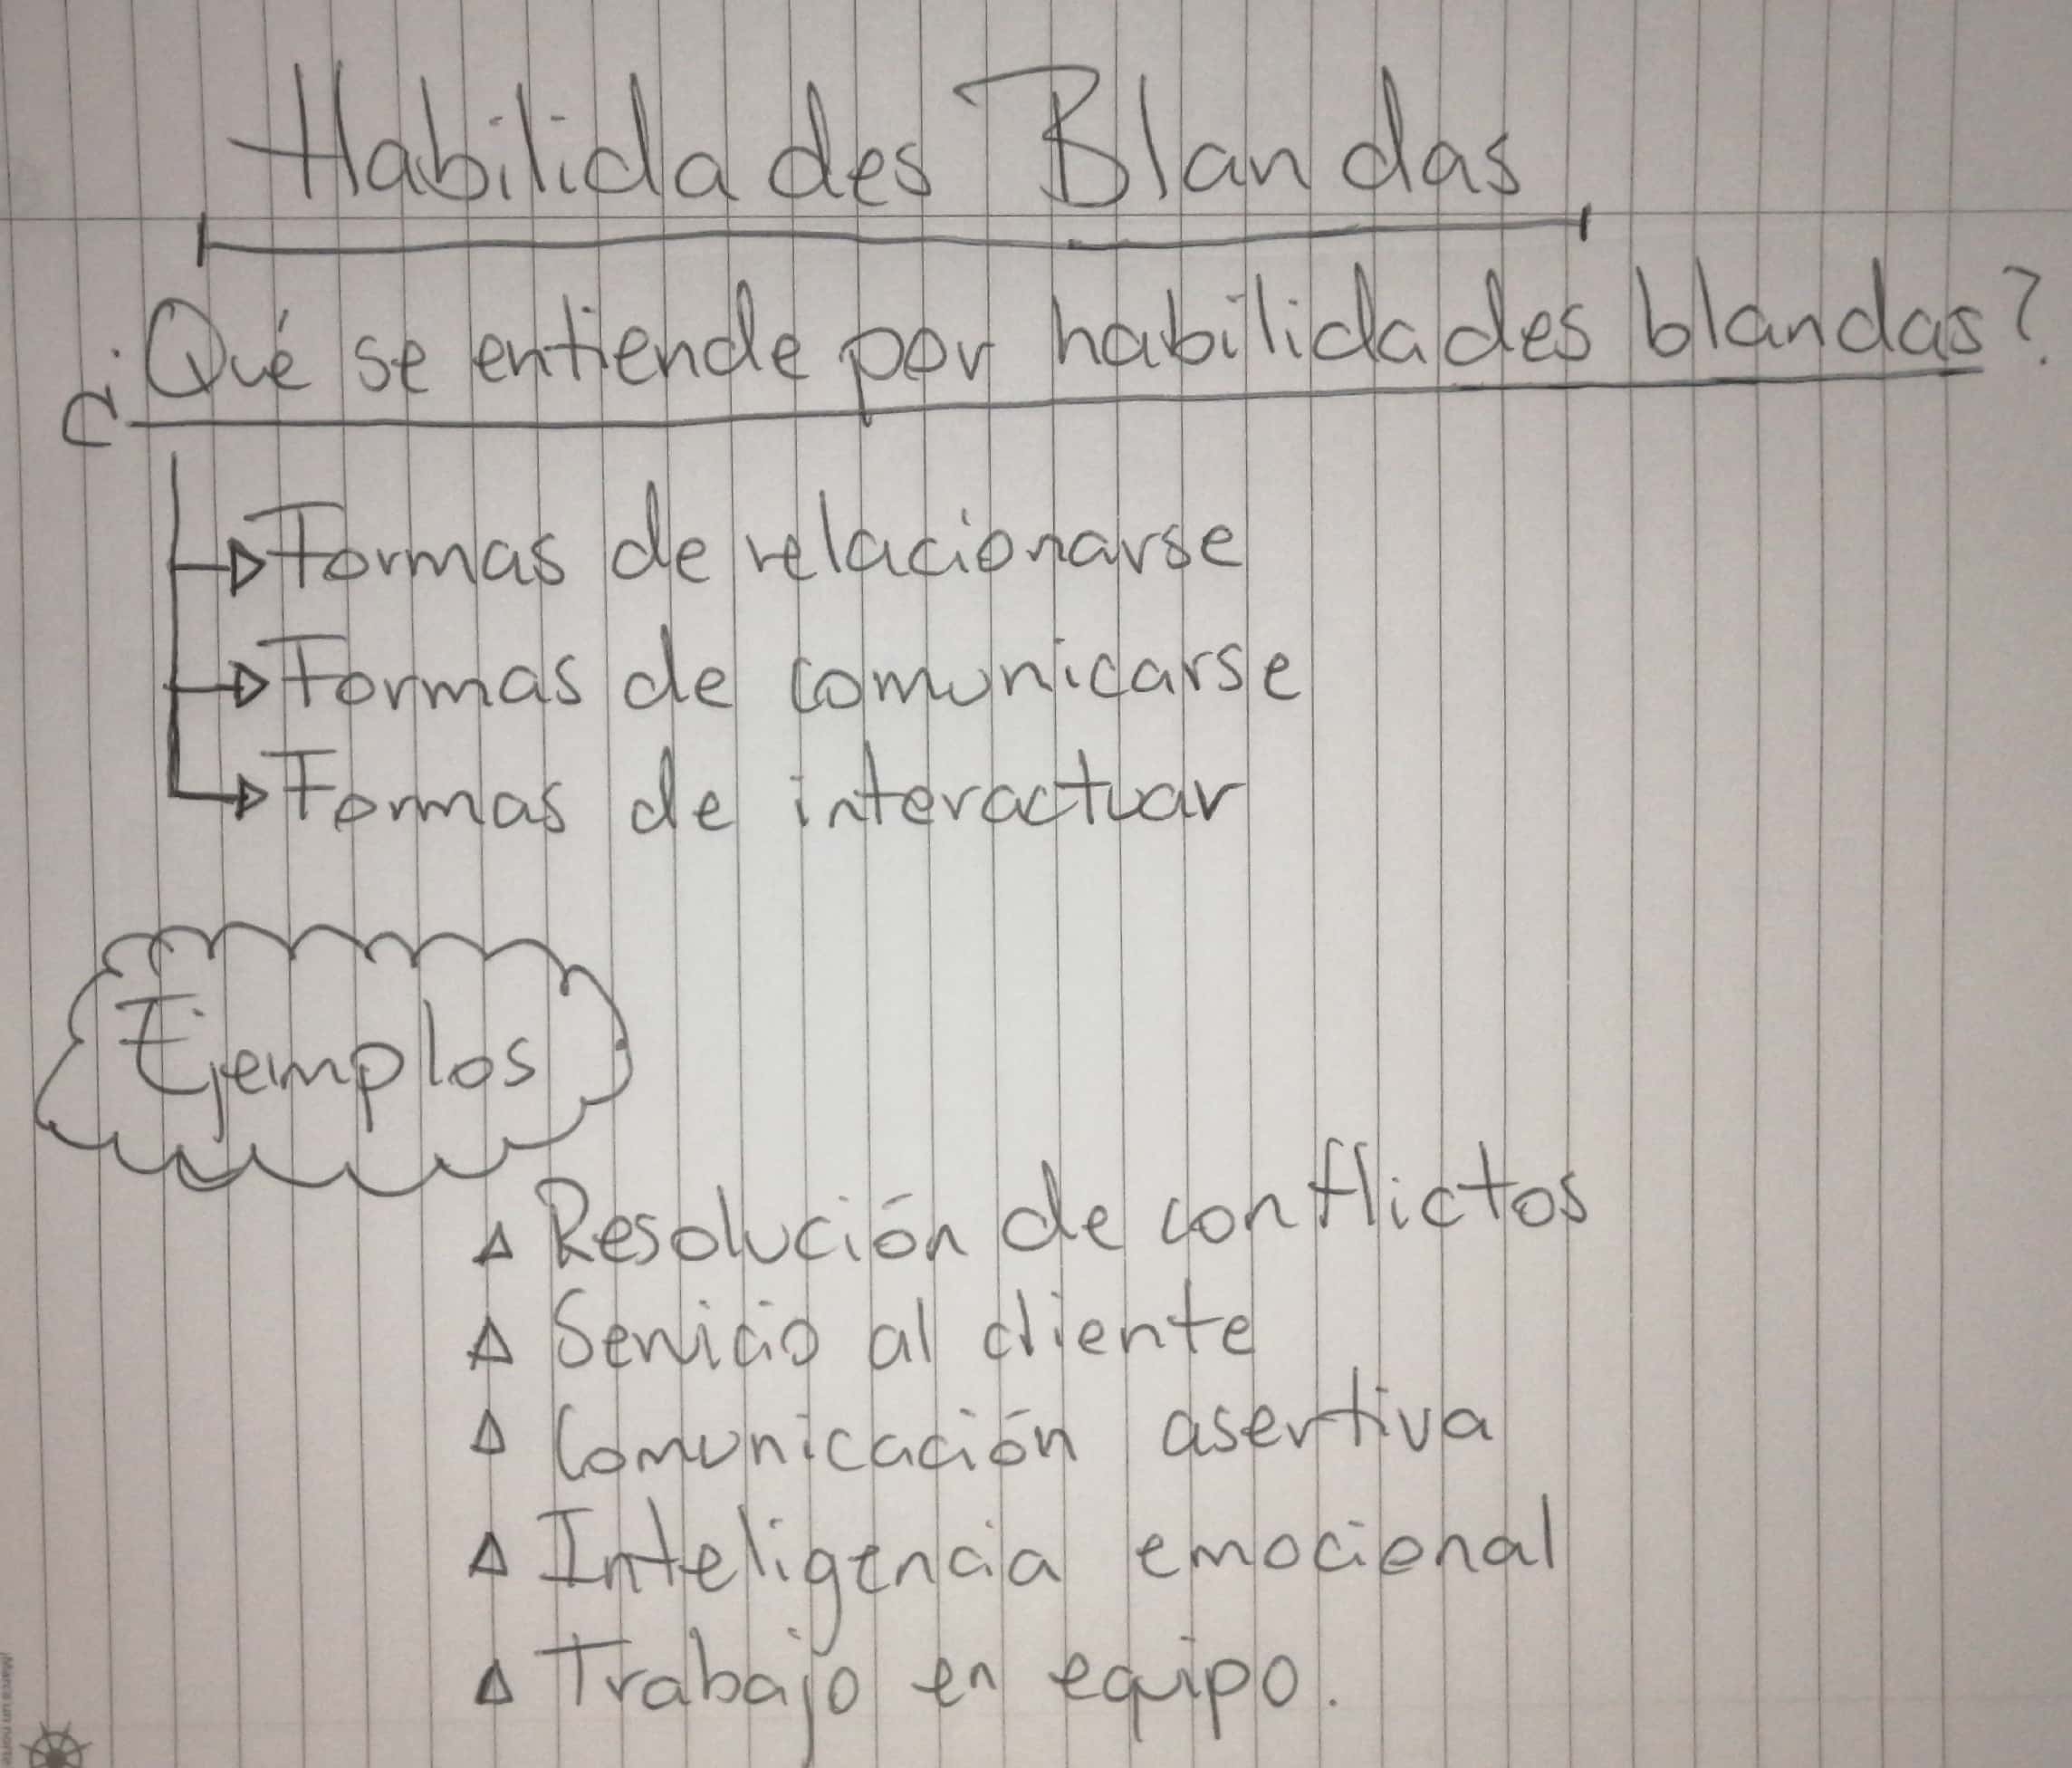 Habilidades Blandas
¿Qué se entiende por habilidades blandas?
Formas de relacionarse
Formas de comunicarse
Formas de interactuar
Ejemplos
Resolución de conflictos
Servicio al cliente
Comunicación asertiva
Inteligencia emocional
Trabajo en equipo.